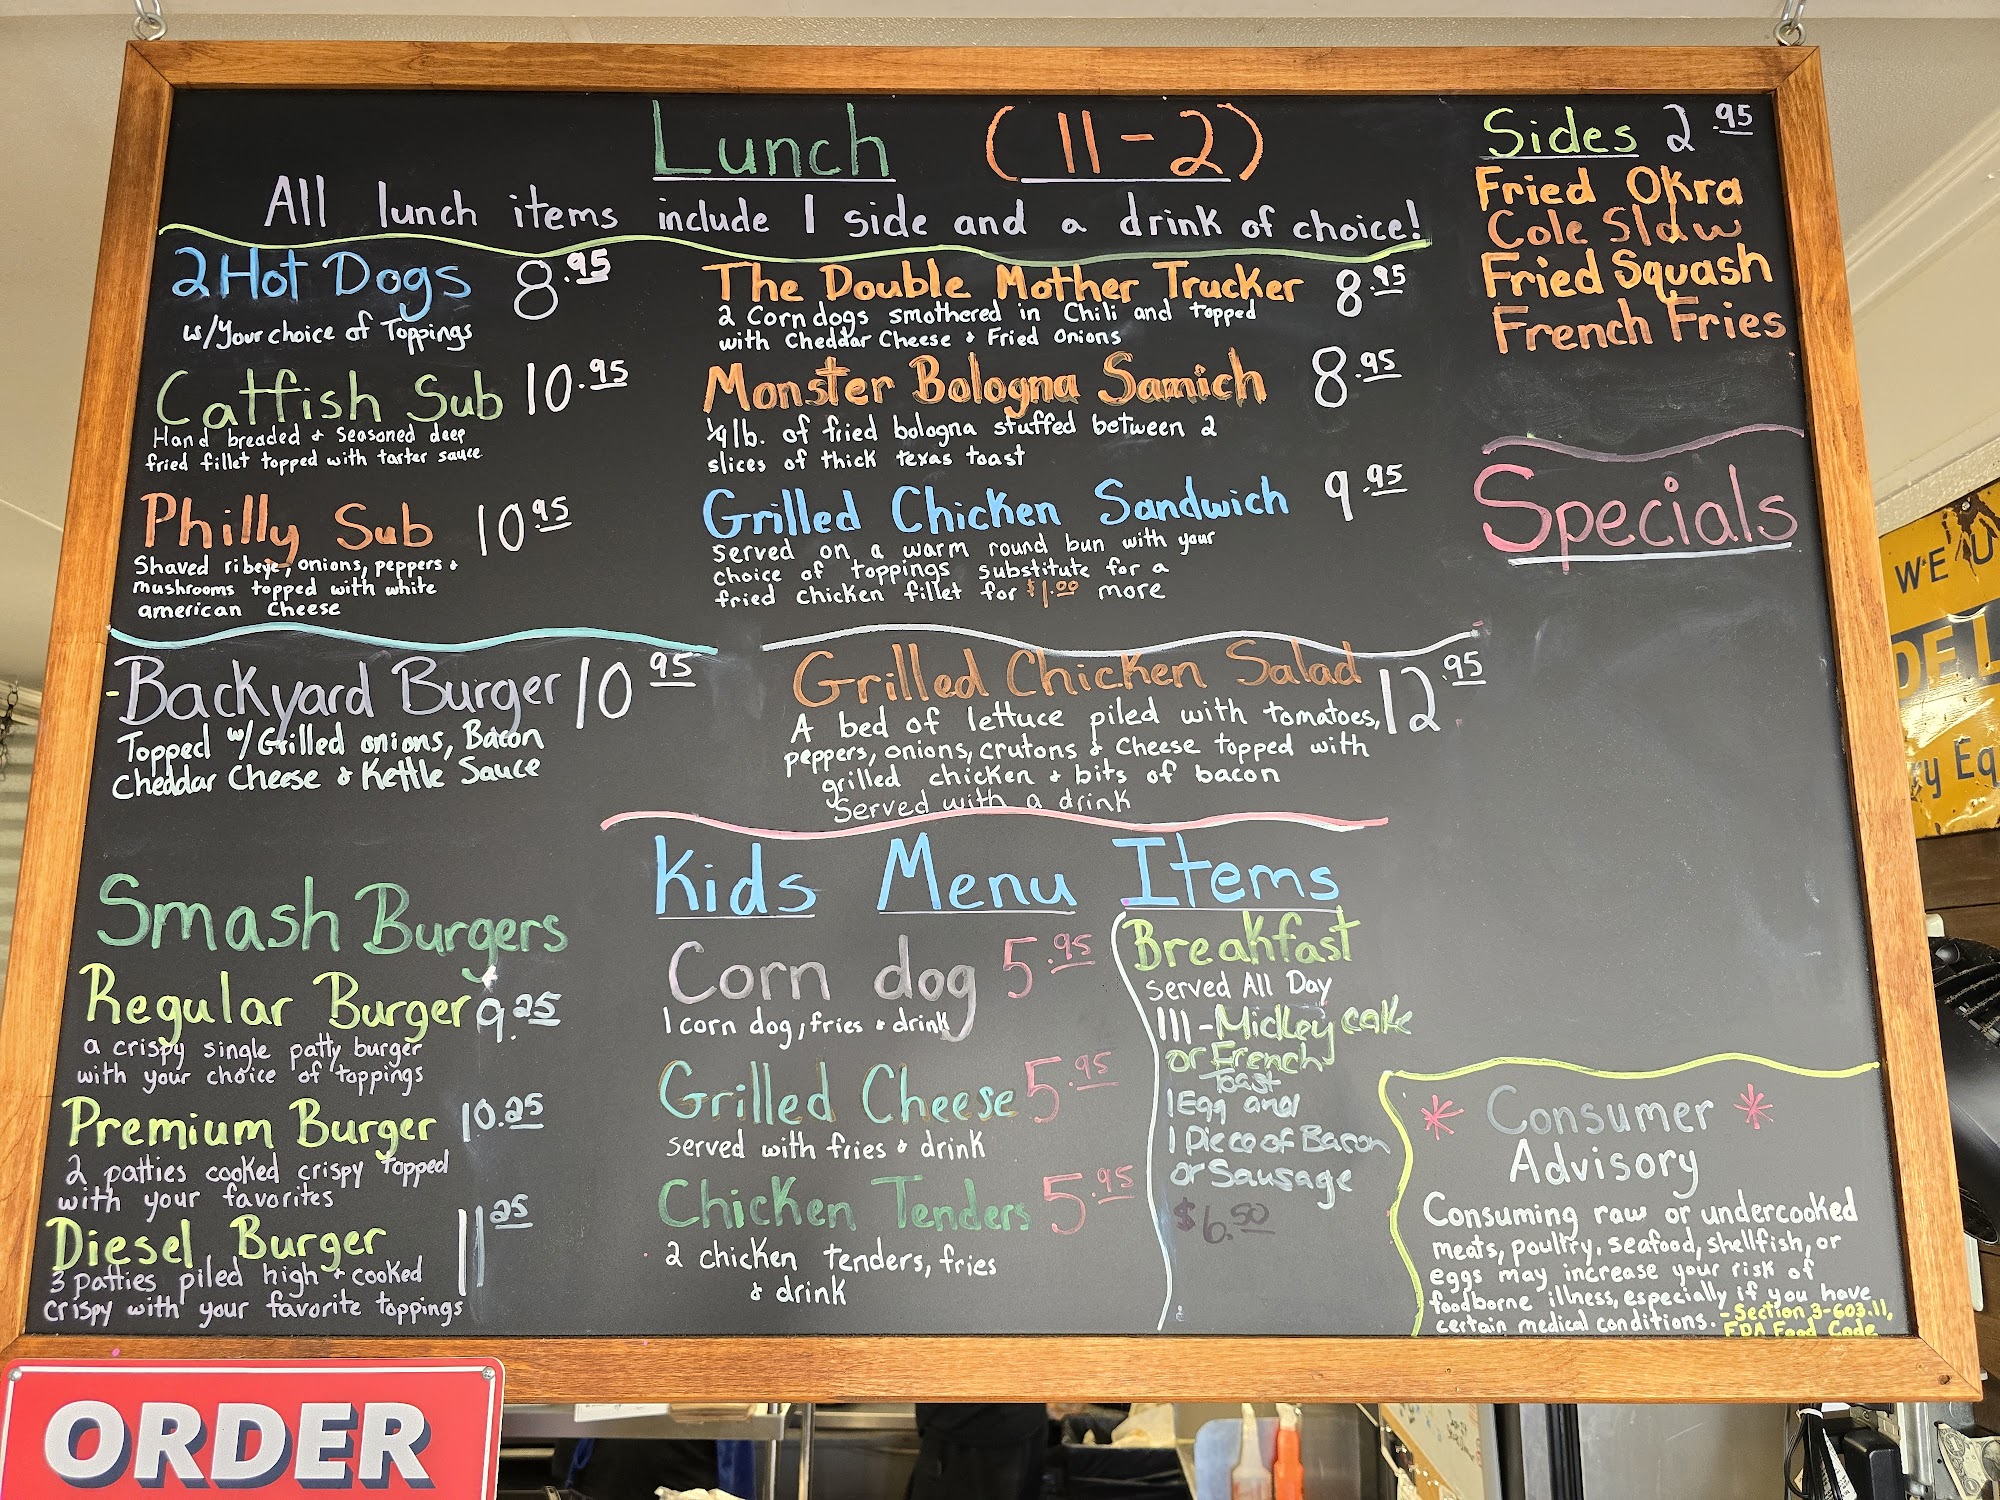 Lunch (11-2)
All lunch items include 1 side and a drink of choice!
2 Hot Dogs 8.95
w/Your choice of Toppings
Catfish Sub 10.95
Hand breaded & Seasoned deep
fried fillet topped with tarter sauce
Philly Sub 10.95
Shaved ribeye, onions, peppers &
mushrooms topped with white
american Cheese
The Double Mother Trucker 8.95
2 Corndogs smothered in Chili and topped
with Cheddar Cheese & Fried Onions
Monster Bologna Samich 8.95
1/4 lb. of fried bologna stuffed between 2
slices of thick texas toast
Grilled Chicken Sandwich 9.95
served on a warm round bun with your
choice of toppings substitute for a
fried chicken fillet for $1.00 more
Sides 2.95
Fried Okra
Cole Slaw
Fried Squash
French Fries
Specials
-Backyard Burger 10.95
Topped w/Grilled onions, Bacon
Cheddar Cheese & Kettle Sauce
Grilled Chicken Salad 12.95
A bed of lettuce piled with tomatoes,
peppers, onions, crutons & Cheese topped with
grilled chicken & bits of bacon
Served with a drink
Smash Burgers
Regular Burger 9.25
a crispy single patty burger
with your choice of toppings
Premium Burger 10.25
2 patties cooked crispy topped
with your favorites
Diesel Burger 11.25
3 patties piled high & cooked
crispy with your favorite toppings
Kids Menu Items
Corn dog 5.95
1 corn dog, fries & drink
Grilled Cheese 5.95
served with fries & drink
Chicken Tenders 5.95
2 chicken tenders, fries
& drink
Breakfast
served All Day
111-Mickey cake
or French
Toast
1 Egg and
1 Piece of Bacon
or Sausage
$6.50
* Consumer *
Advisory
Consuming raw or undercooked
meats, poultry, seafood, shellfish, or
eggs may increase your risk of
foodborne illness, especially if you have
certain medical conditions. -Section 3-603.11,
FDA Food Code
WE U
DEL
y Eq
ORDER